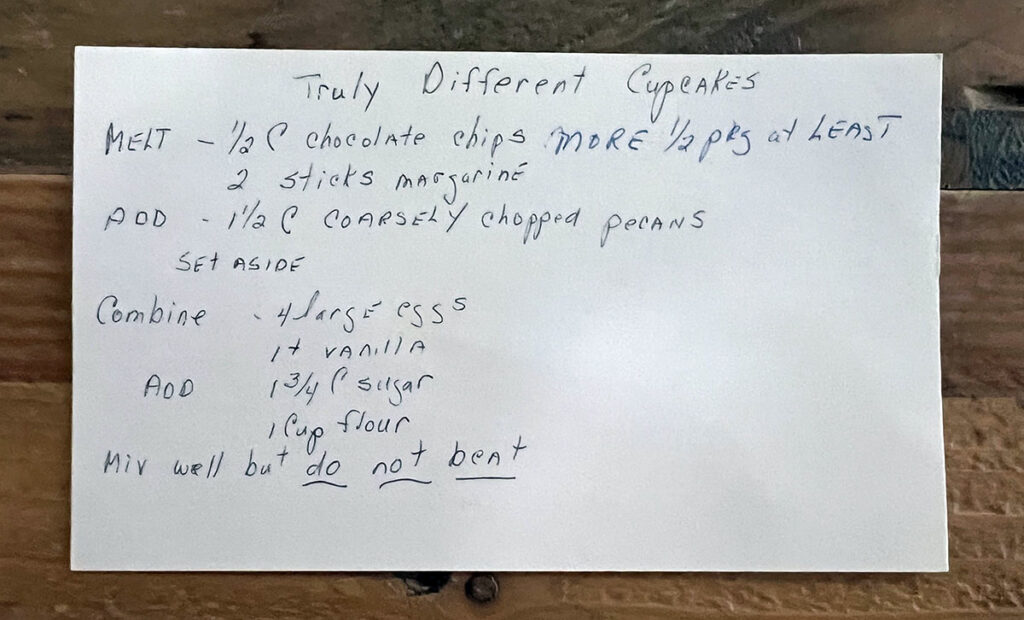 Truly Different Cupcakes
MELT - 1/2 C chocolate chips MORE 1/2 pkg at LEAST
2 sticks margarine
ADD - 1 1/2 C COARSELY chopped pecans
SET ASIDE
Combine - 4 large eggs
1 t vanilla
ADD 1 3/4 C sugar
1 Cup flour
Mix well but do not beat